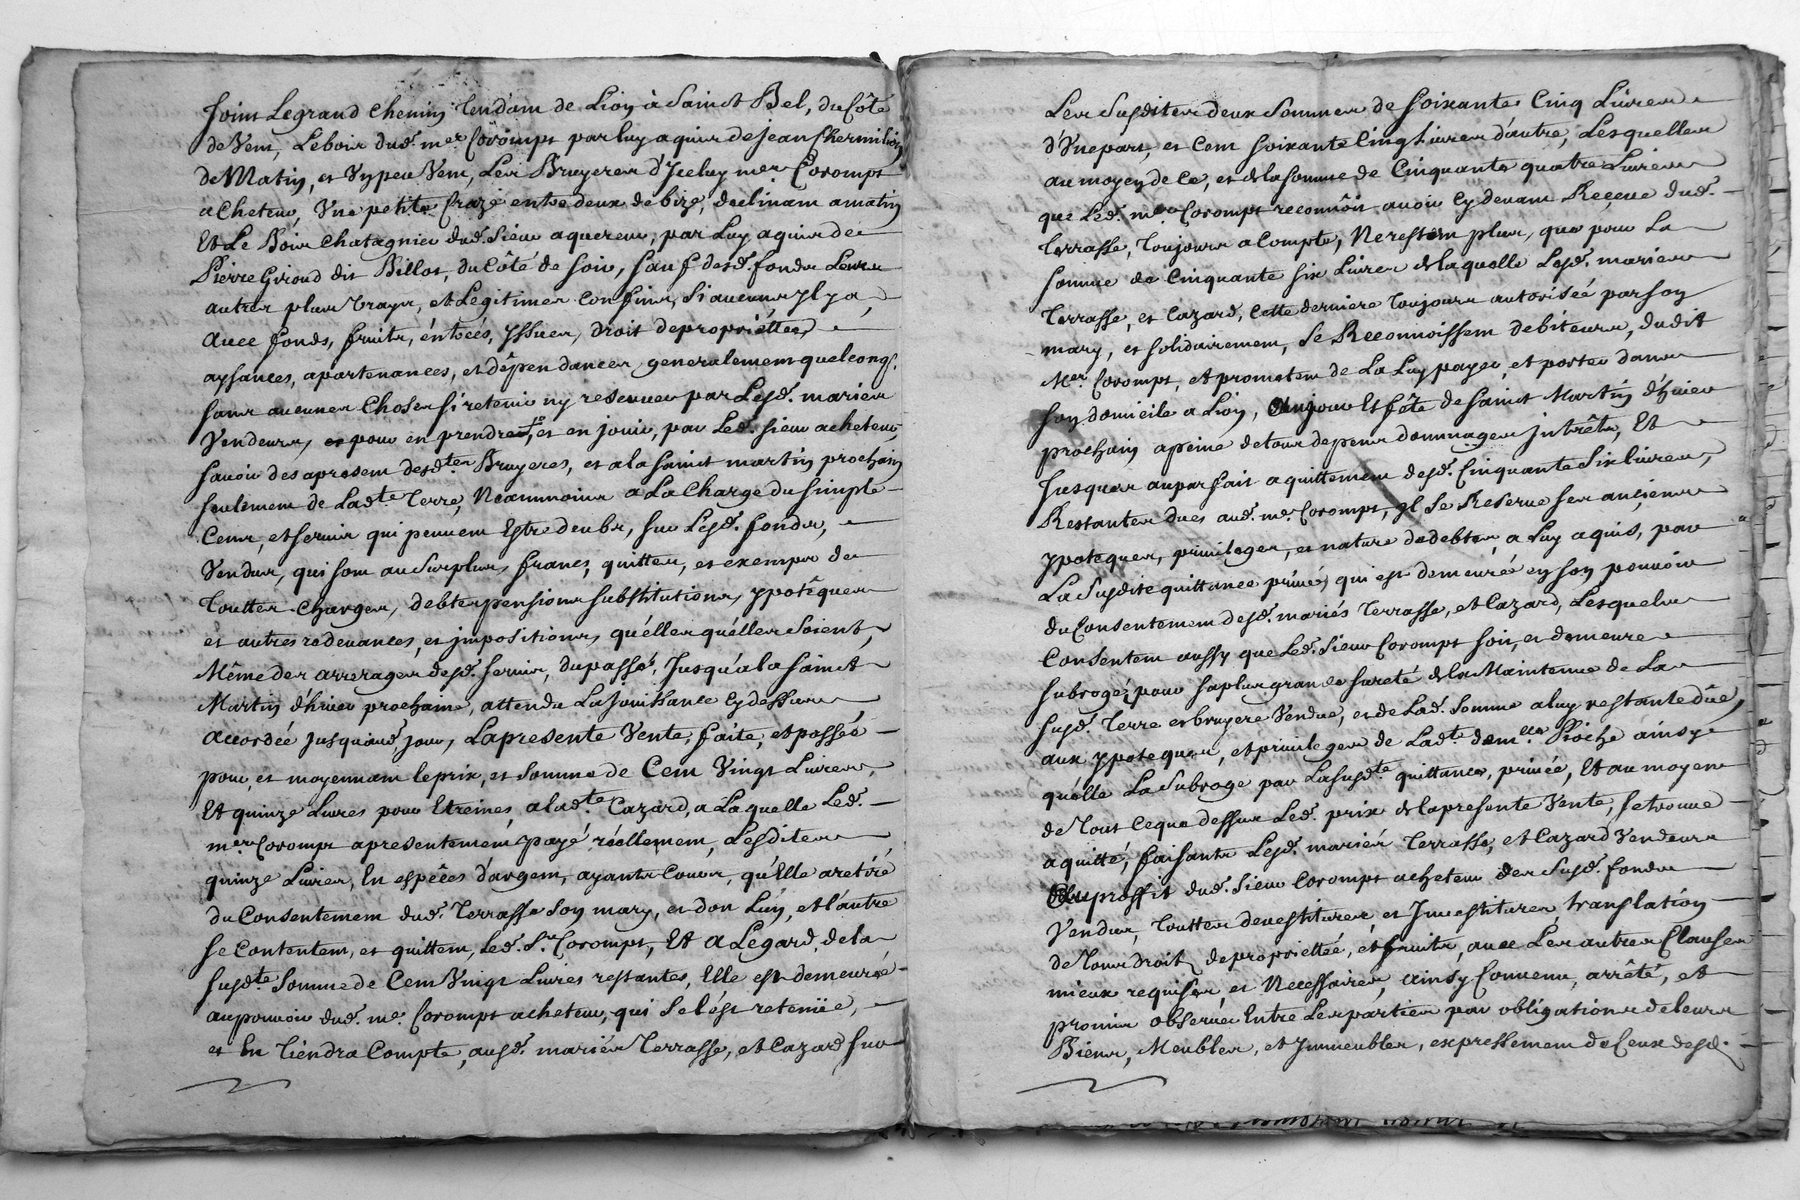 joint Legrand chemin tendant de Lion à Sainct Bel, du Côté
de Vent, Lebois dud. mer. Coromps par luy aquis de jean Chermilion
de Matin, et Un peu Vent, Les Bruyeres d'Iceluy mer Coromps
acheteur, Une petite fraze entre deux de bize, declinant a matin
Et Le Bois Chatagnier dud. Sieur aquereur, par Luy aquis de
Pierre Giroud dit Billot, du Côté de Soir, Sauf desd. fonds Leurs
autres plus Vrays, et Legitimes Confins, Si aucuns yl y a,
avec fonds, fruits, éntrées, yssues, droit de propriettes,
aysances, apartenances, et dépendances generalement quelconq.
Sans aucunes Choses Si retenir ny reserver par Lesd. mariés
Vendeurs, pour en prendre, et en jouir, par Led. Sieur acheteur,
Savoir des apresent desdtes Bruyeres, et a la Sainct martin prochain
Seulement de Ladte Terre, Neanmoins a La Charge du Simple
Cens, et Servis qui peuvent Estre deubs, Sur Lesd. fonds,
Vendus, qui Sont au Surplus, francs, quittes, et exempts de
Touttes Charges, debtes pensions Substitutions, ypotêques
et autres redevances, et jmpositions, qu'élles qu'élles Soient,
Même des arrerages desd. Servis, du passé, Jusqu'a la Sainct
Martin d'hiver prochaine, attendu La Joüissance cy dessus
accordée jusqu'aud. jour, La presente Vente, faite, et passée
pour, et moyennant le prix, et Somme de Cent Vingt Livres,
Et quinze Livres pour Etreines, a ladte Cazard, a Laquelle Led.
mer Coromps a presentement payé réellement, Lesdites
quinze Livres, En espêces d'argent, ayants Cours, qu'Elle a retiré
du Consentement dud. Terrasse Son mary, et dont L'un, et l'autre
se Contentent, et quittent, Led. Sr. Coromps, Et a L'egard, de la
Susdte Somme de Cent Vingt Livres restantes, Elle est demeurée
au pouvoir dud. mr. Coromps acheteur, qui Se l'ést retenüe,
et En Tiendra Compte, ausd. mariés Terrasse, et Cazard Sur
Les Susdites deux Sommes de Soixante Cinq Livres
d'Une part, et Cent Soixante Cinq Livres d'autre, Lesquelles
au moyen de Ce, et de la Somme de Cinquante quatre Livres
que Led. mer Coromps reconnôit avoir Cy devant Reçeue dud.
Terrasse, Toujours a Compte, Ne restent plus, que pour La
Somme de Cinquante Six Livres de laquelle Lesd. mariés
Terrasse, et Cazard, Cette derniere Toujours autorisée par Son
mary, et Solidairement, Se Reconnoissent debiteurs, dudit
Mer. Coromps, et promettent de La Luy payer, et porter dans
Son domicile a Lion, jour Et fête de Sainct Martin d'hiver
prochain, a peine de tous depens dommages jntrêts, Et
Jusques au parfait aquittement desd. Cinquante Six livres,
Restantes dues aud. mr. Coromps, yl Se Reserve Ses anciens
ypoteques, privileges, et nature de debtes, a Luy aquis, par
La Susdite quittance privée, qui est demeurée en Son pouvoir
du Consentement desd. mariés Terrasse, et Cazard, Lesquels
Consentent aussy que Led. Sieur Coromps Soit, et demeure
Subrogé, pour Sa plus grande Sureté de la Maintenue de La
Susd. Terre et bruyere Vendue, et de Lad. Somme a luy restante dûe,
aux ypoteques, et privileges de Ladte. demlle. Pioche ainsy
quélle La Subroge par La Susdte quittance, privée, Et au moyen
de Tout Ceque dessus Led. prix de la presente Vente, Se trouve
aquitté, faisants Lesd. mariés Terrasse, et Cazard Vendeurs
proffit dud. Sieur Coromps acheteur des Susd. fonds
Vendus, Touttes devestitures, et Jnvestitures, translation
de Tous droits, de propriettée, et fruits, avec Les autres Clauses
mieux requises, et Necessaires, ainsy Convenu, arrêté, et
promis observer Entre Les parties par obligations de leurs
Biens, Meubles, et jmmeubles, expressement de Ceux desd.